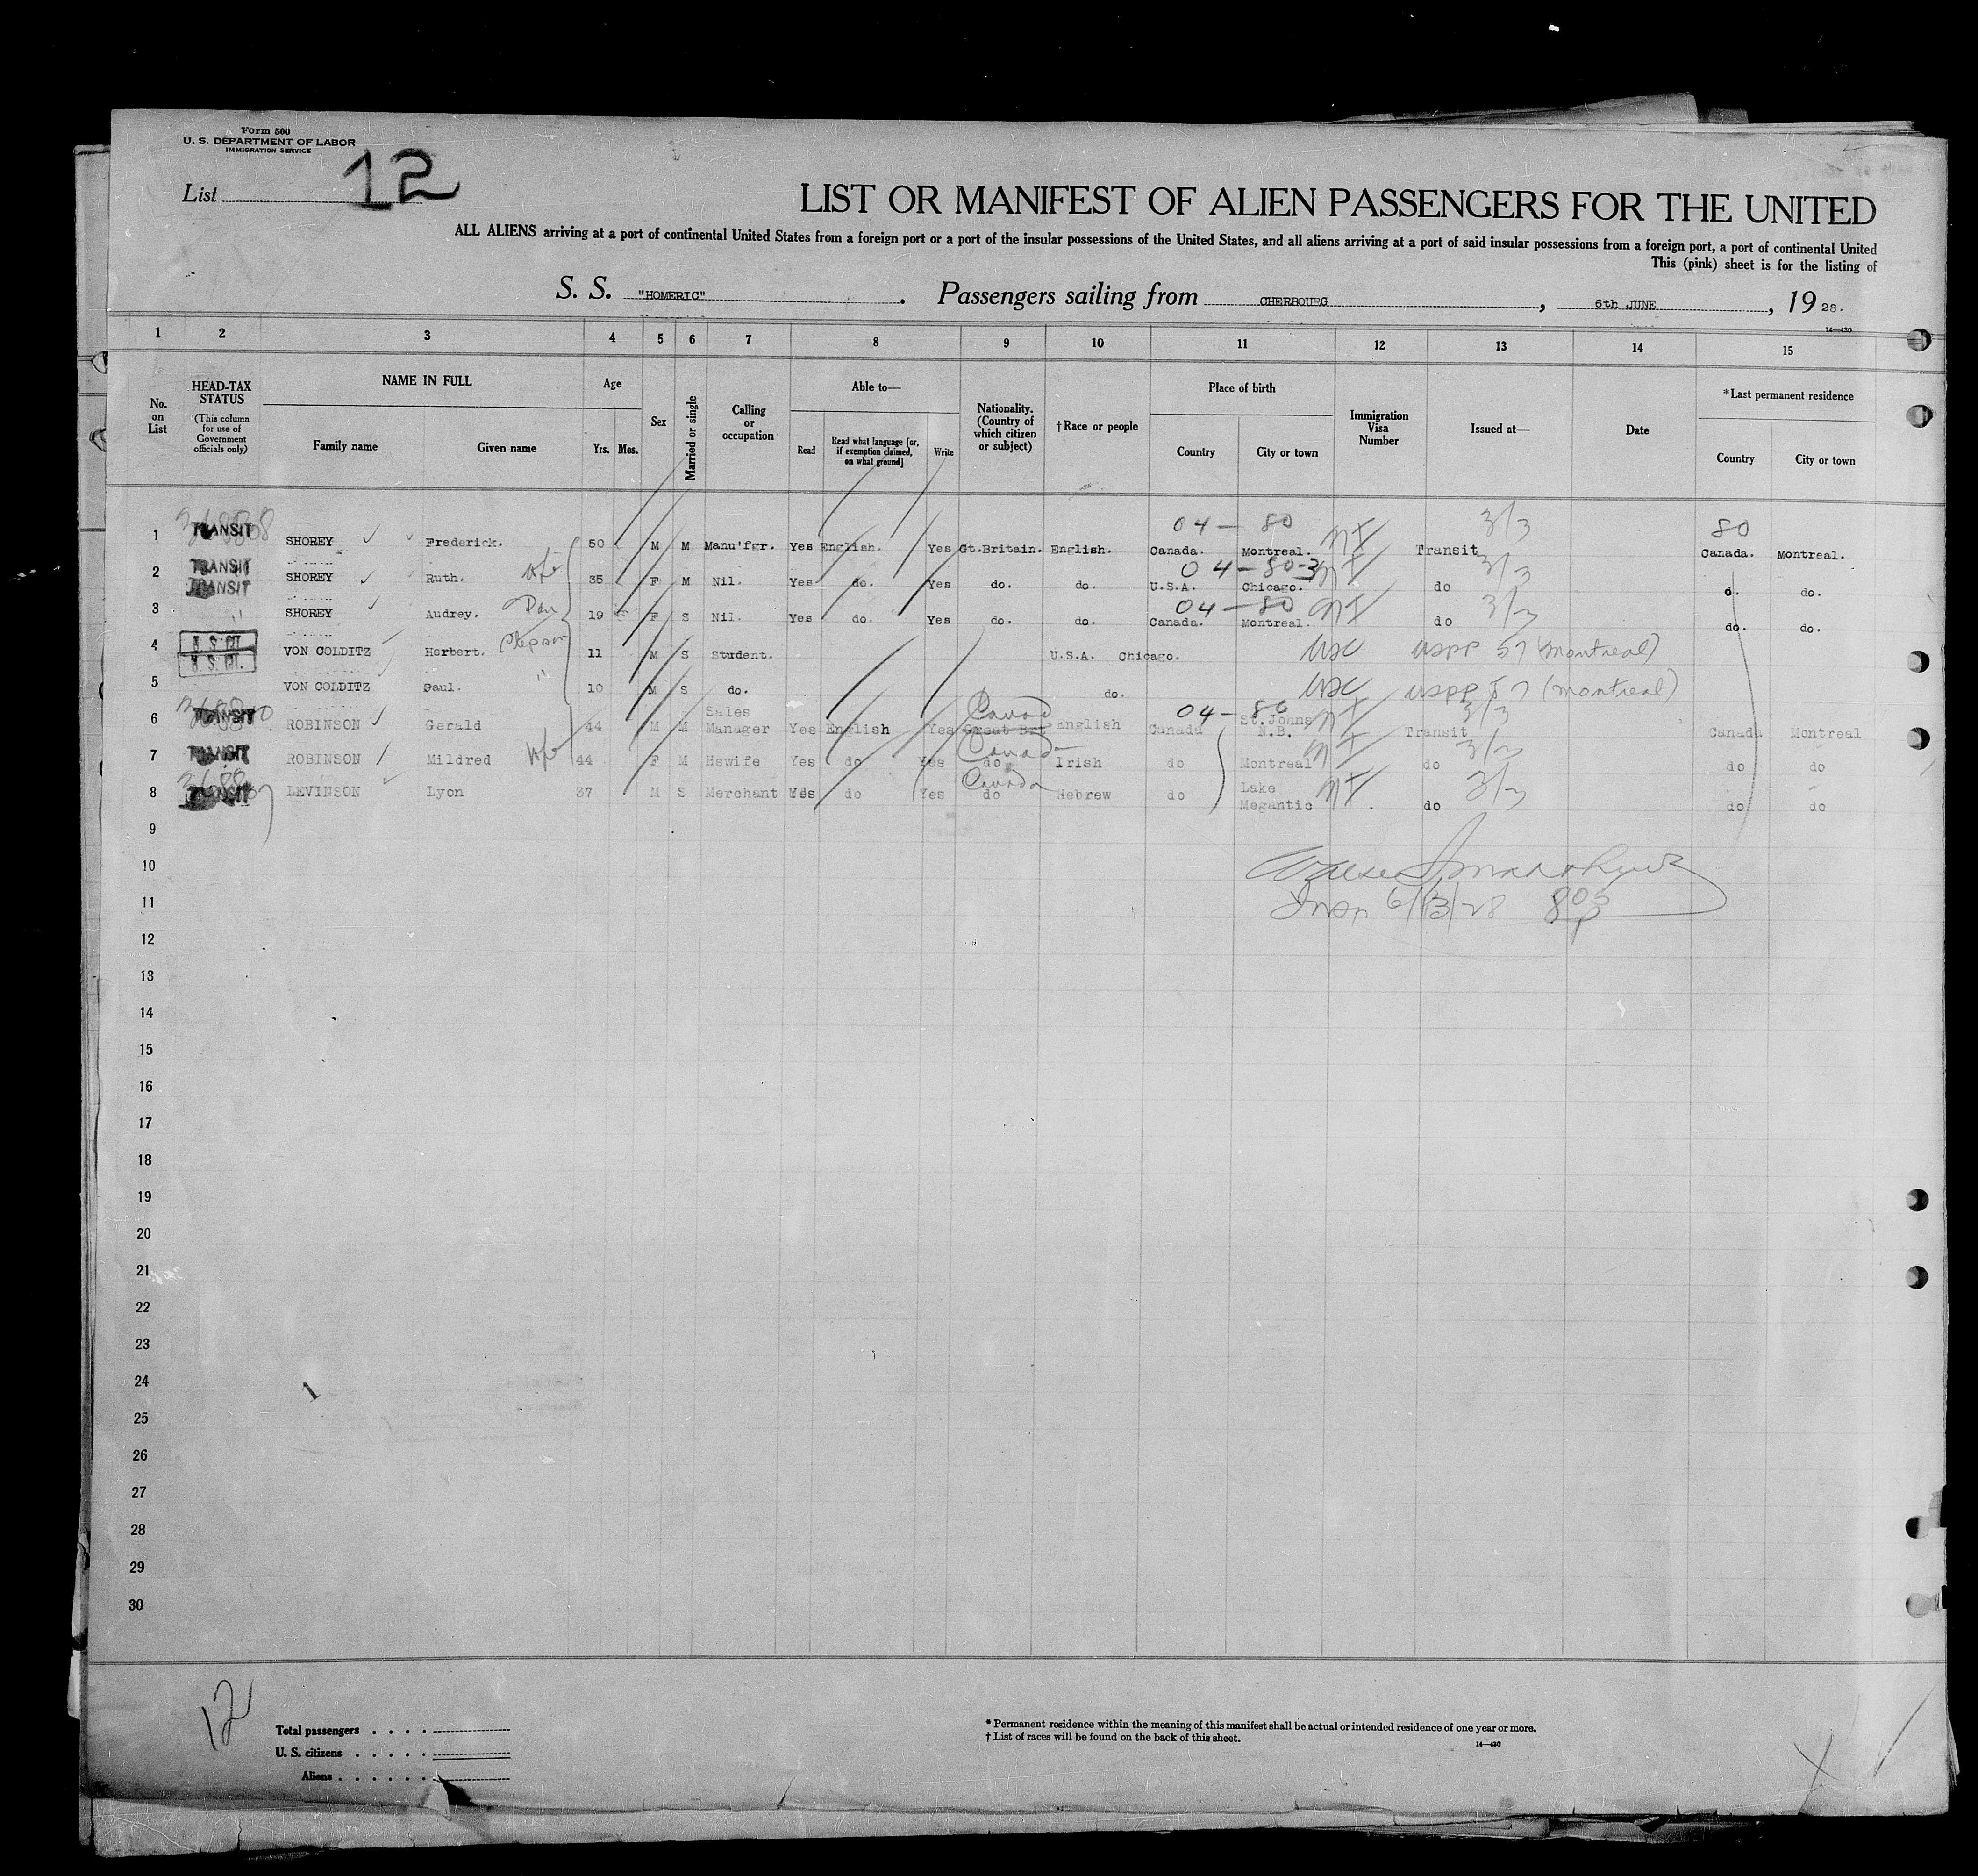 Form 500
U. S. DEPARTMENT OF LABOR
IMMIGRATION SERVICE
List 12
LIST OR MANIFEST OF ALIEN PASSENGERS FOR THE UNITED
ALL ALIENS arriving at a port of continental United States from a foreign port or a port of the insular possessions of the United States, and all aliens arriving at a port of said insular possessions from a foreign port, a port of continental United
This (pink) sheet is for the listing of
S. S. "HOMERIC". Passengers sailing from CHERBOURG, 6th JUNE, 19 28.
14-430
1 2 3 4 5 6 7 8 9 10 11 12 13 14 15
No. on List
HEAD-TAX STATUS (This column for use of Government officials only)
NAME IN FULL
Family name Given name
Age
Yrs. Mos.
Sex
Married or single
Calling or occupation
Able to—
Read Read what language [or, if exemption claimed, on what ground] Write
Nationality. (Country of which citizen or subject)
†Race or people
Place of birth
Country City or town
Immigration Visa Number
Issued at—
Date
*Last permanent residence
Country City or town
04 - 80 3/3 80
1 TRANSIT SHOREY Frederick. 50 M M Manu'fgr. Yes English. Yes Gt.Britain. English. Canada. Montreal. Transit Canada. Montreal.
04-80-3 3/3
2 TRANSIT SHOREY Ruth. 35 F M Nil. Yes do. Yes do. do. U.S.A. Chicago. do d. do.
TRANSIT
04-80
3 SHOREY Audrey. 19 F S Nil. Yes do. Yes do. do. Canada. Montreal. do do. do.
4 U. S. CIT. VON COLDITZ Herbert. Stepson 11 M S Student. U.S.A. Chicago. USC USPP 57 (Montreal)
U. S. CIT.
5 VON COLDITZ Paul. " 10 M S do. do. USC USPP 57 (Montreal)
Sales Canad 04-80 St.Johns 3/3
6 TRANSIT ROBINSON Gerald 44 M M Manager Yes English Yes Great Brt English Canada N.B. Transit Canada Montreal
Canada
7 TRANSIT ROBINSON Mildred 44 F M Hswife Yes do Yes do Irish do Montreal do do do
Canada Lake
8 TRANSIT LEVINSON Lyon 37 M S Merchant Yes do Yes do Hebrew do Megantic do do do
9
10
11 Insp. 6/13/28 8
12
13
14
15
16
17
18
19
20
21
22
23
24
25
26
27
28
29
30
12
Total passengers
U. S. citizens
Aliens
* Permanent residence within the meaning of this manifest shall be actual or intended residence of one year or more.
† List of races will be found on the back of this sheet.
14-430